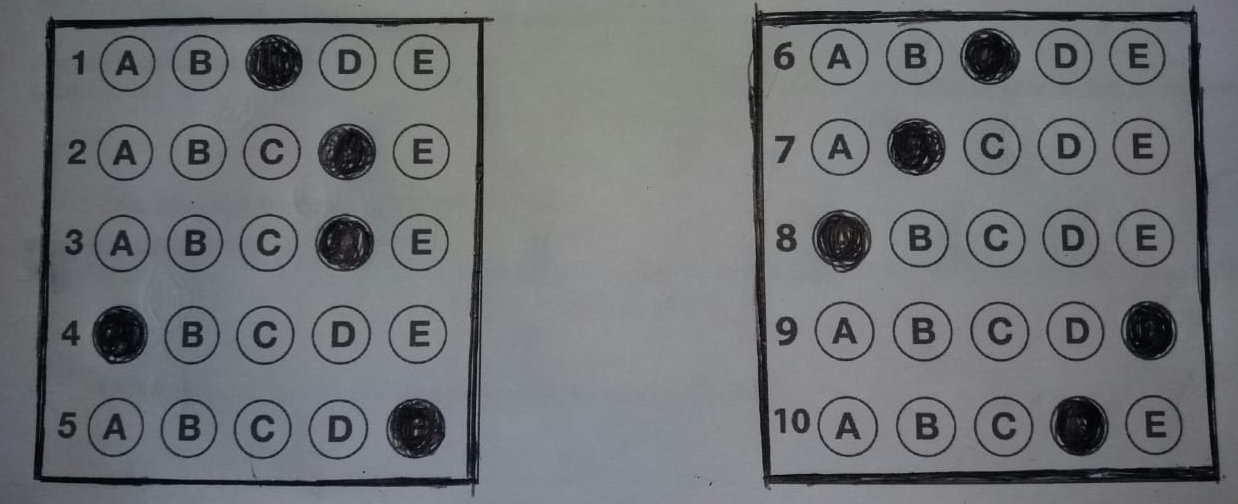 1 A B D E
2 A B C E
3 A B C E
4 B C D E
5 A B C D
6 A B D E
7 A C D E
8 B C D E
9 A B C D
10 A B C E